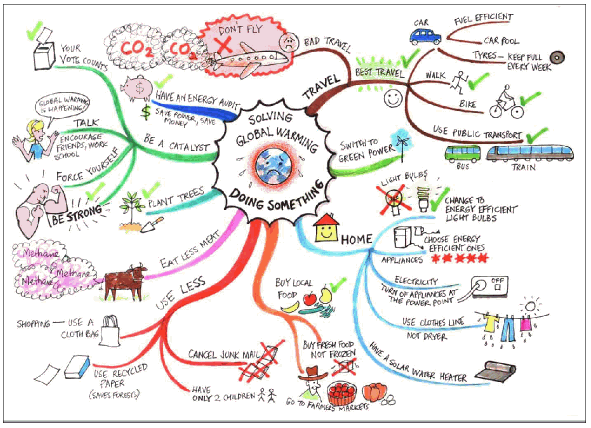 SOLVING
GLOBAL WARMING
DOING SOMETHING
TRAVEL
BAD TRAVEL
DON'T FLY
CO2
CO2
BEST TRAVEL
CAR
FUEL EFFICIENT
CAR POOL
TYRES - KEEP FULL
EVERY WEEK
WALK
BIKE
USE PUBLIC TRANSPORT
BUS
TRAIN
SWITCH TO
GREEN POWER
HOME
LIGHT BULBS
CHANGE TO
ENERGY EFFICIENT
LIGHT BULBS
APPLIANCES
CHOOSE ENERGY
EFFICIENT ONES
ELECTRICITY
TURN OF APPLIANCES AT
THE POWER POINT
OFF
USE CLOTHES LINE
NOT DRYER
HAVE A SOLAR WATER HEATER
BUY LOCAL
FOOD
BUY FRESH FOOD
NOT FROZEN
GO TO FARMERS MARKETS
USE LESS
CANCEL JUNK MAIL
HAVE
ONLY 2 CHILDREN
USE RECYCLED
PAPER
(SAVES FORESTS)
SHOPPING - USE A
CLOTH BAG
EAT LESS MEAT
Methane
Methane
Methane
PLANT TREES
BE A CATALYST
BE STRONG
FORCE YOURSELF
TALK
ENCOURAGE
FRIENDS, WORK
SCHOOL
GLOBAL WARMING
IS HAPPENING!
YOUR
VOTE COUNTS
HAVE AN ENERGY AUDIT
SAVE POWER, SAVE
MONEY
$